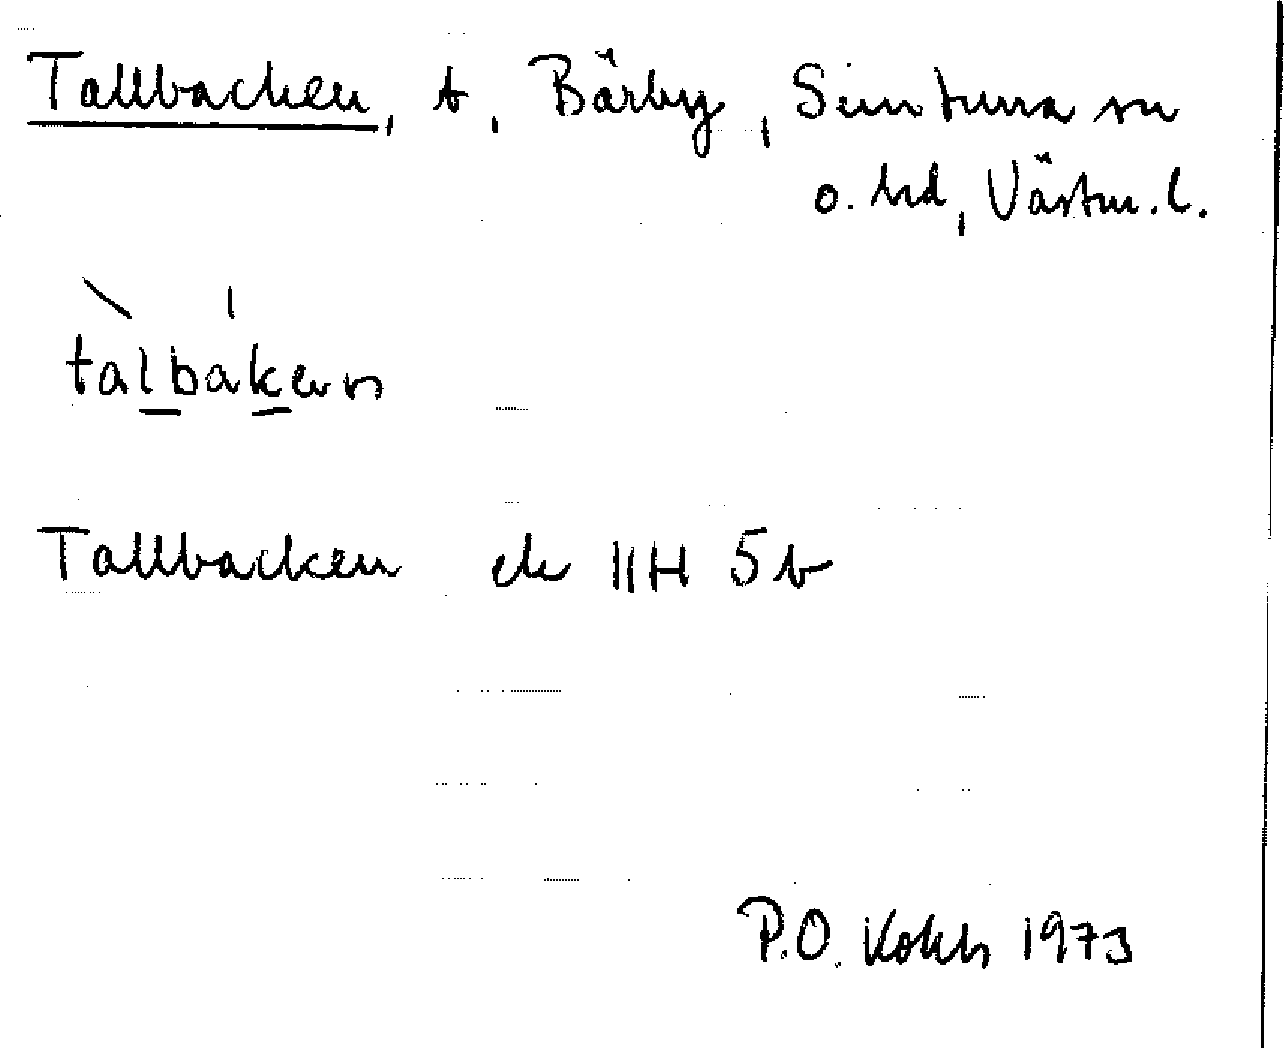 Tallbacken, t, Bärby, Simtuna sn
o. hd, Västm. l.
talbaken
Tallbacken ek 11H 5b
P.O. 1973